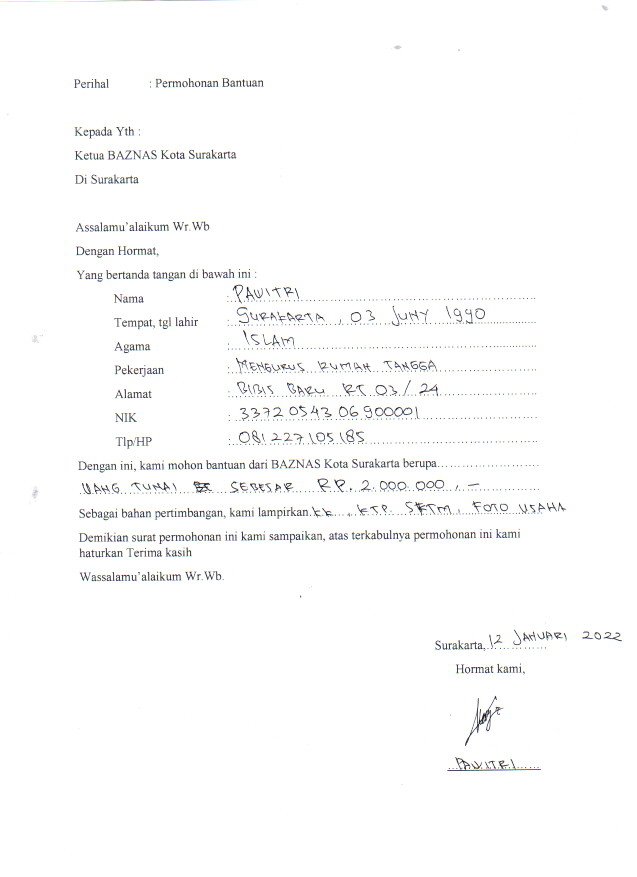 Perihal : Permohonan Bantuan
Kepada Yth :
Ketua BAZNAS Kota Surakarta
Di Surakarta
Assalamu'alaikum Wr.Wb
Dengan Hormat,
Yang bertanda tangan di bawah ini :
Nama : PAWITRI
Tempat, tgl lahir : SURAKARTA, 03 JUNY 1990
Agama : ISLAM
Pekerjaan : MENGURUS RUMAH TANGGA
Alamat : BIBIS BARU RT 03 / 24
NIK : 3372054306900001
Tlp/HP : 081227105185
Dengan ini, kami mohon bantuan dari BAZNAS Kota Surakarta berupa
UANG TUNAI SEBESAR RP. 2.000.000,-
Sebagai bahan pertimbangan, kami lampirkan KK, KTP. SKTM, FOTO USAHA
Demikian surat permohonan ini kami sampaikan, atas terkabulnya permohonan ini kami
haturkan Terima kasih
Wassalamu'alaikum Wr.Wb.
Surakarta, 12 JANUARI 2022
Hormat kami,
PAWITRI